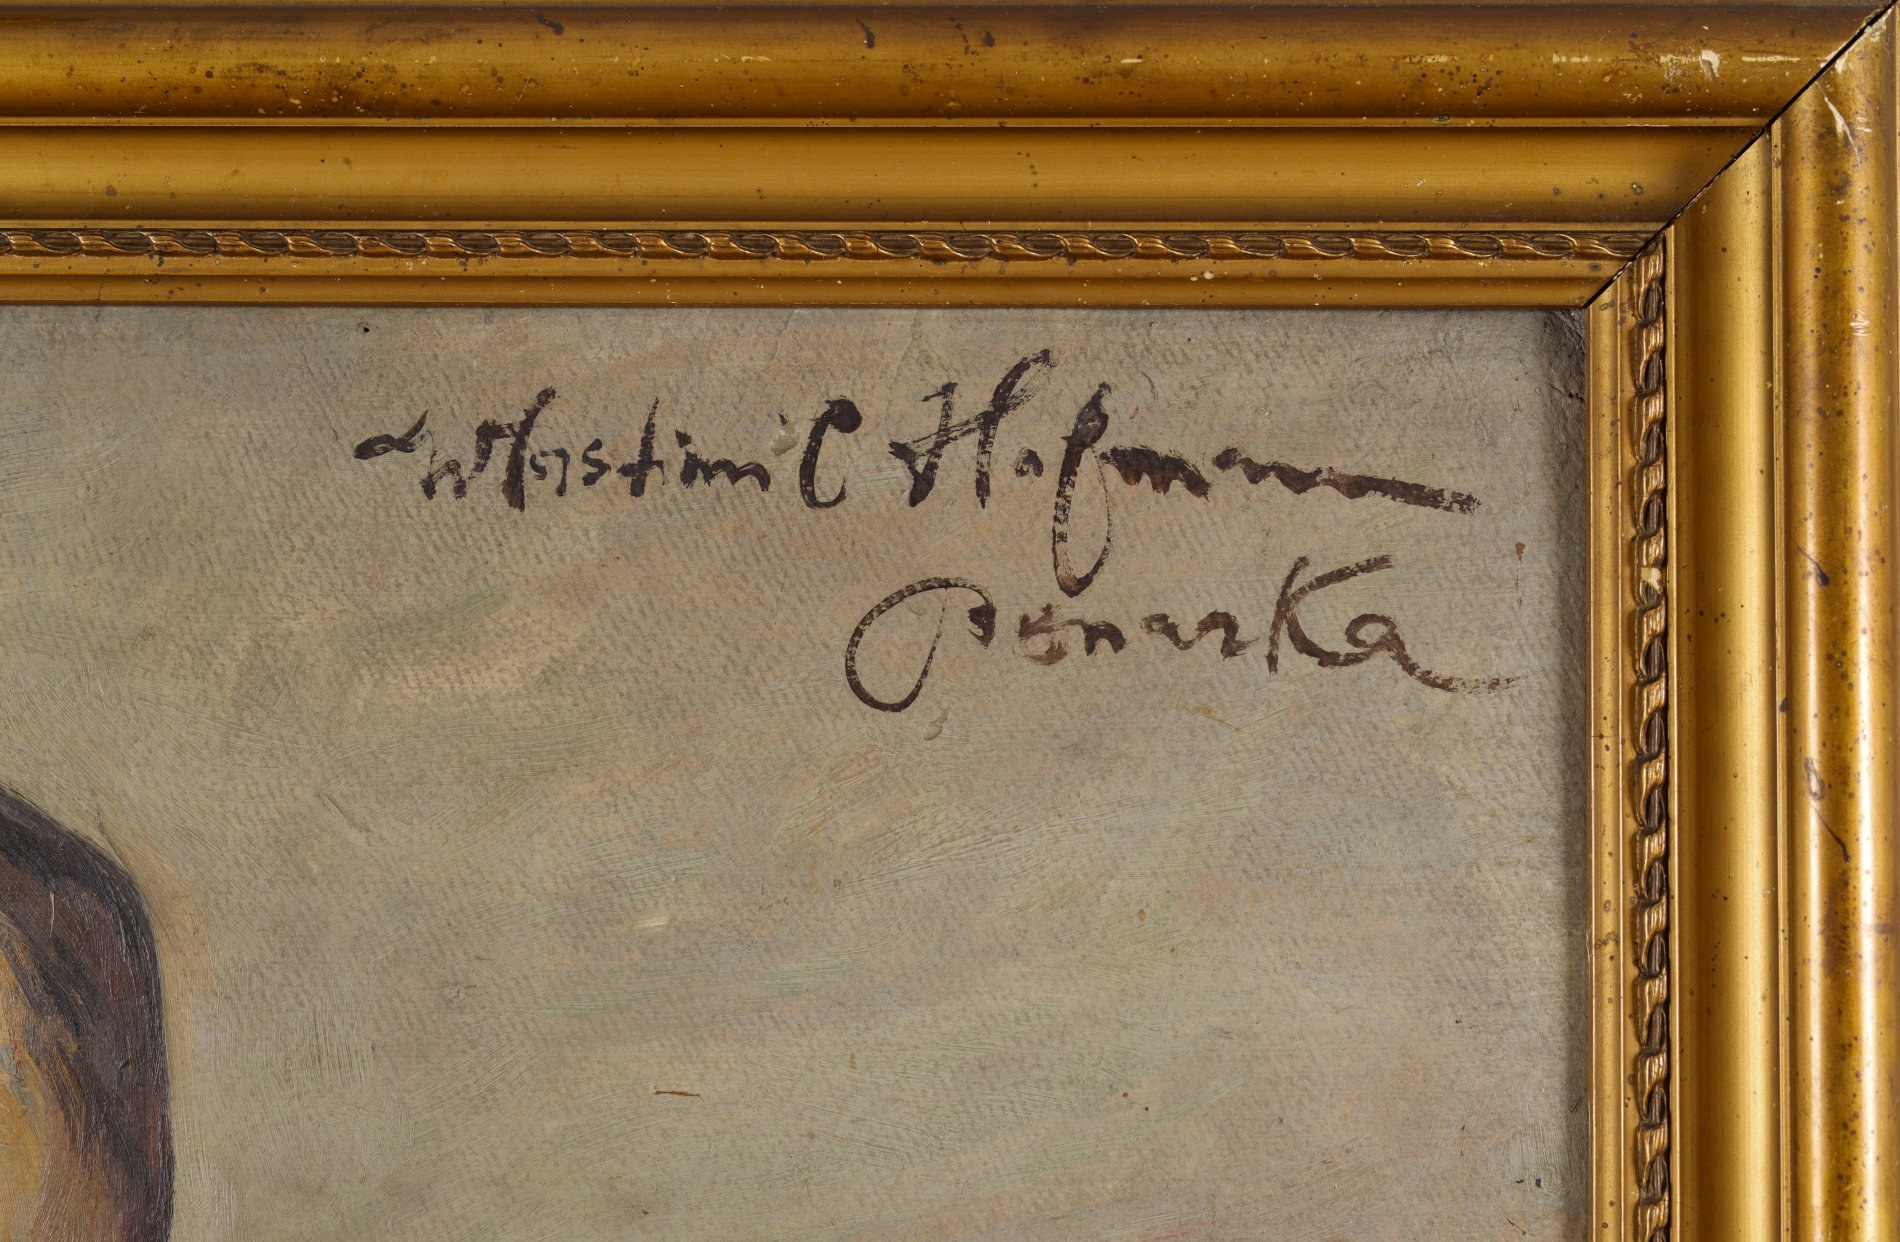 Wlastimil Hofman
Bonarka